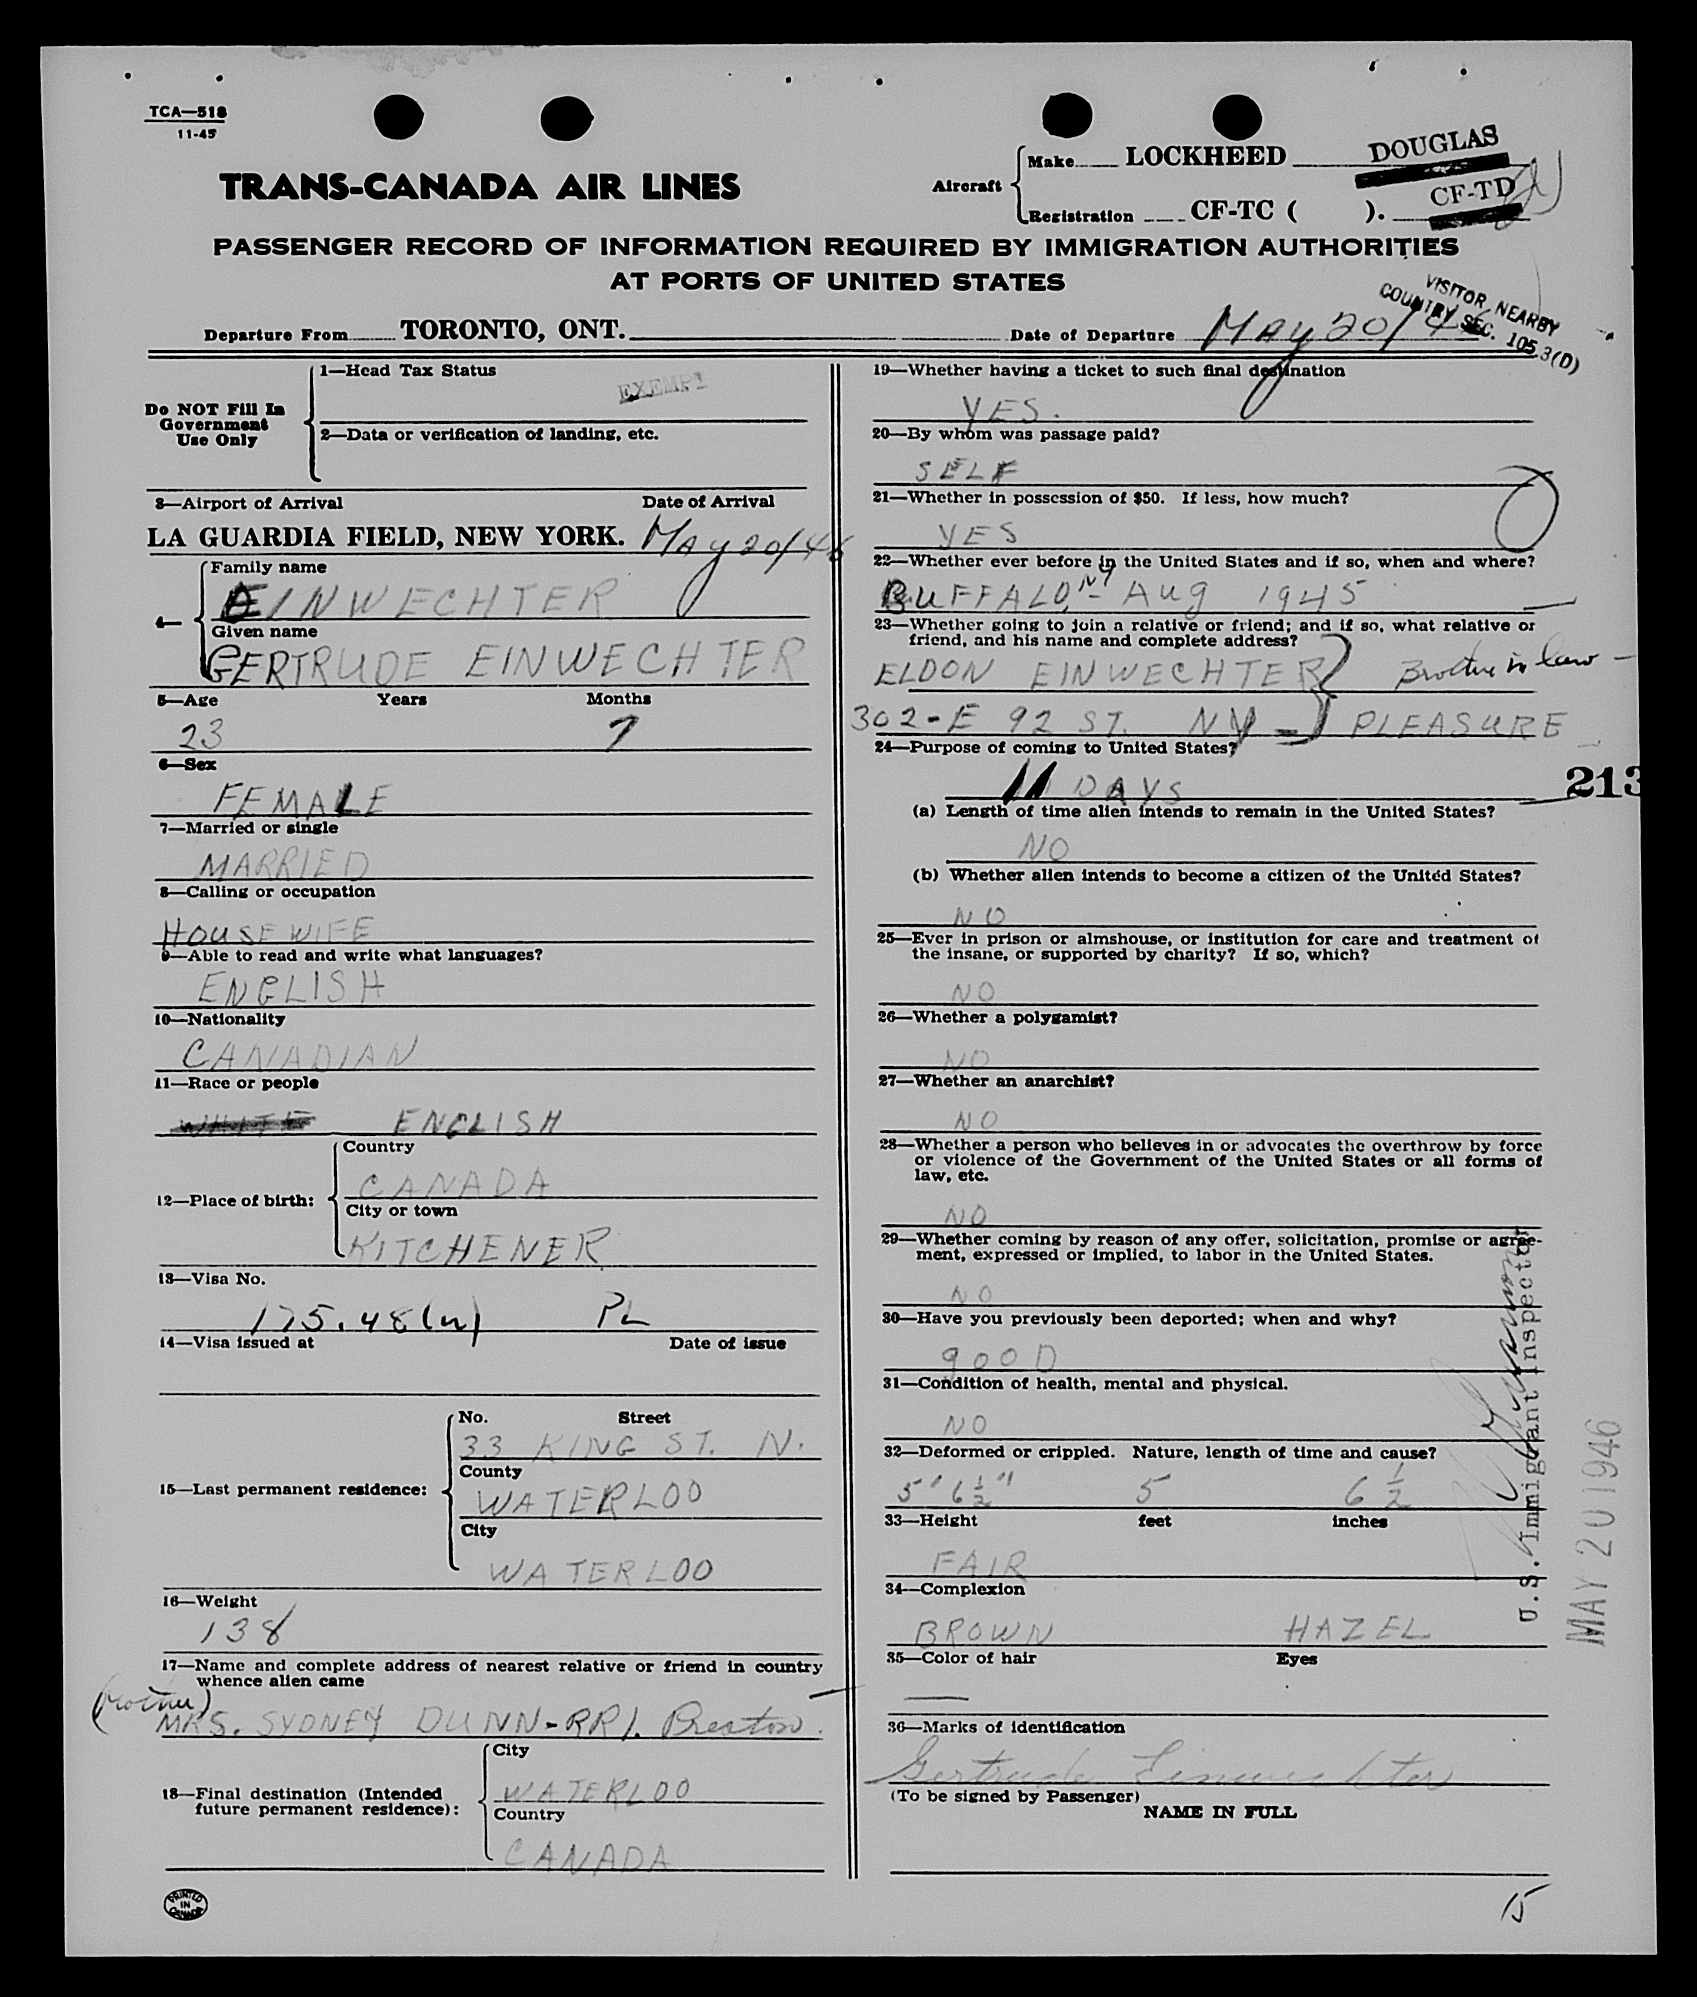 TCA—518
11-45
TRANS-CANADA AIR LINES
Aircraft
Make LOCKHEED
DOUGLAS
Registration CF-TC ( ).
CF-TD
PASSENGER RECORD OF INFORMATION REQUIRED BY IMMIGRATION AUTHORITIES
AT PORTS OF UNITED STATES
VISITOR NEARBY
COUNTRY SEC. 105.3(D)
Departure From TORONTO, ONT.
Date of Departure May 20/46
Do NOT Fill In
Government
Use Only
1—Head Tax Status
EXEMPT
2—Data or verification of landing, etc.
3—Airport of Arrival Date of Arrival
LA GUARDIA FIELD, NEW YORK. May 20/46
4—
Family name
EINWECHTER
Given name
GERTRUDE EINWECHTER
5—Age Years Months
23 7
6—Sex
FEMALE
7—Married or single
MARRIED
8—Calling or occupation
HOUSEWIFE
9—Able to read and write what languages?
ENGLISH
10—Nationality
CANADIAN
11—Race or people
WHITE ENGLISH
12—Place of birth:
Country
CANADA
City or town
KITCHENER
13—Visa No.
175.48(n) PL
14—Visa issued at Date of issue
15—Last permanent residence:
No. Street
33 KING ST. N.
County
WATERLOO
City
WATERLOO
16—Weight
138
17—Name and complete address of nearest relative or friend in country
whence alien came
(Mother)
MRS. SYDNEY DUNN-RR1. Preston.
18—Final destination (Intended
future permanent residence):
City
WATERLOO
Country
CANADA
PRINTED
IN
CANADA
19—Whether having a ticket to such final destination
YES.
20—By whom was passage paid?
SELF
21—Whether in possession of $50. If less, how much?
YES
22—Whether ever before in the United States and if so, when and where?
BUFFALO, NY - Aug 1945
23—Whether going to join a relative or friend; and if so, what relative or
friend, and his name and complete address?
ELDON EINWECHTER } Brother in law -
302-E 92 ST. NY - PLEASURE
24—Purpose of coming to United States?
11 DAYS
213
(a) Length of time alien intends to remain in the United States?
NO
(b) Whether alien intends to become a citizen of the United States?
NO
25—Ever in prison or almshouse, or institution for care and treatment of
the insane, or supported by charity? If so, which?
NO
26—Whether a polygamist?
NO
27—Whether an anarchist?
NO
28—Whether a person who believes in or advocates the overthrow by force
or violence of the Government of the United States or all forms of
law, etc.
NO
29—Whether coming by reason of any offer, solicitation, promise or agree-
ment, expressed or implied, to labor in the United States.
NO
30—Have you previously been deported; when and why?
gooD
31—Condition of health, mental and physical.
NO
32—Deformed or crippled. Nature, length of time and cause?
5' 6½" 5 6½
33—Height feet inches
FAIR
34—Complexion
BROWN HAZEL
35—Color of hair Eyes
36—Marks of identification
Gertrude Einwechter
(To be signed by Passenger)
NAME IN FULL
U.S. Immigrant Inspector
MAY 20 1946
15